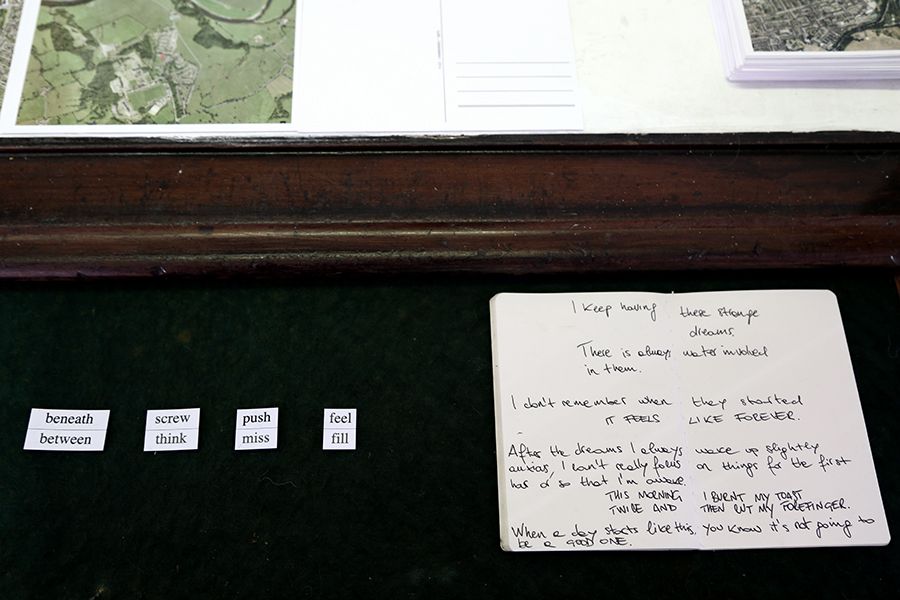 beneath
between
screw
think
push
miss
feel
fill
I keep having these strange
dreams.
There is always water involved
in them.
I don't remember when they started
IT FEELS LIKE FOREVER.
After the dreams I always wake up slightly
anxious, I can't really focus on things for the first
hour or so that I'm awake.
THIS MORNING I BURNT MY TOAST
TWICE AND THEN CUT MY FOREFINGER.
When a day starts like this you know it's not going to
be a GOOD ONE.